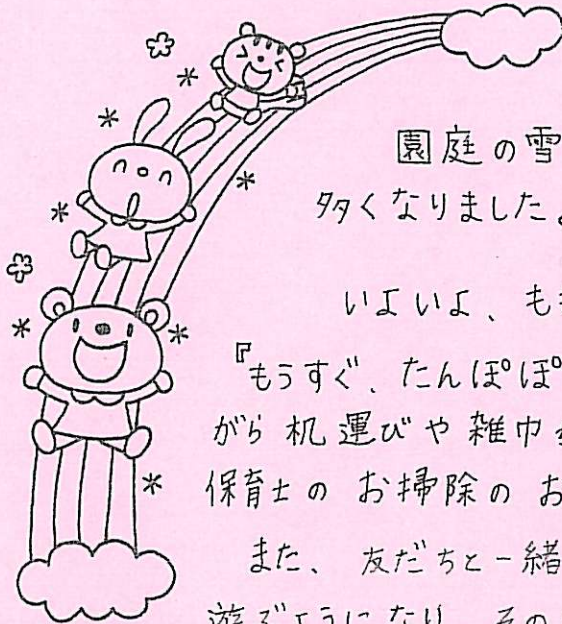 園庭の雪
多くなりました。
いよいよ、もも
『もうすぐ、たんぽぽ
がら机運びや雑巾
保育士のお掃除のお
また、友だちと一緒
遊ぶようになり、その